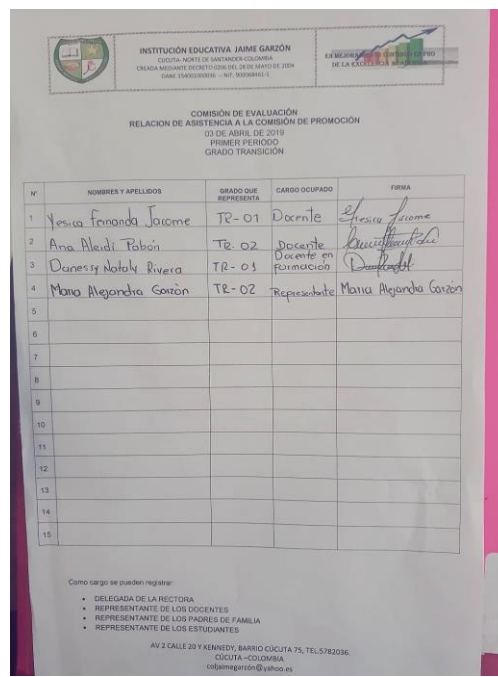 INSTITUCIÓN EDUCATIVA JAIME GARZÓN
CUCUTA- NORTE DE SANTANDER-COLOMBIA
CREADA MEDIANTE DECRETO 0206 DEL 28 DE MAYO DE 2009
EN MEJORAMIENTO CONTINUO EN PRO
DE LA EXCELENCIA ACADÉMICA
COMISIÓN DE EVALUACIÓN
RELACION DE ASISTENCIA A LA COMISIÓN DE PROMOCIÓN
03 DE ABRIL DE 2019
PRIMER PERIODO
GRADO TRANSICIÓN
N° NOMBRES Y APELLIDOS GRADO QUE REPRESENTA CARGO OCUPADO FIRMA
1 Yesica Fernanda Jacome TR-01 Docente Yesica Jacome
2 Ana Aleidi Pabón TR-02 Docente
3 Danessy Nataly Rivera TR-01 Docente en formación
4 Maria Alejandra Garzón TR-02 Representante Maria Alejandra Garzón
5
6
7
8
9
10
11
12
13
14
15
Como cargo se pueden registrar:
• DELEGADA DE LA RECTORA
• REPRESENTANTE DE LOS DOCENTES
• REPRESENTANTE DE LOS PADRES DE FAMILIA
• REPRESENTANTE DE LOS ESTUDIANTES
AV 2 CALLE 20 Y KENNEDY, BARRIO CÚCUTA 75, TEL.5782036.
CÚCUTA –COLOMBIA
coljaimegarzon@yahoo.es